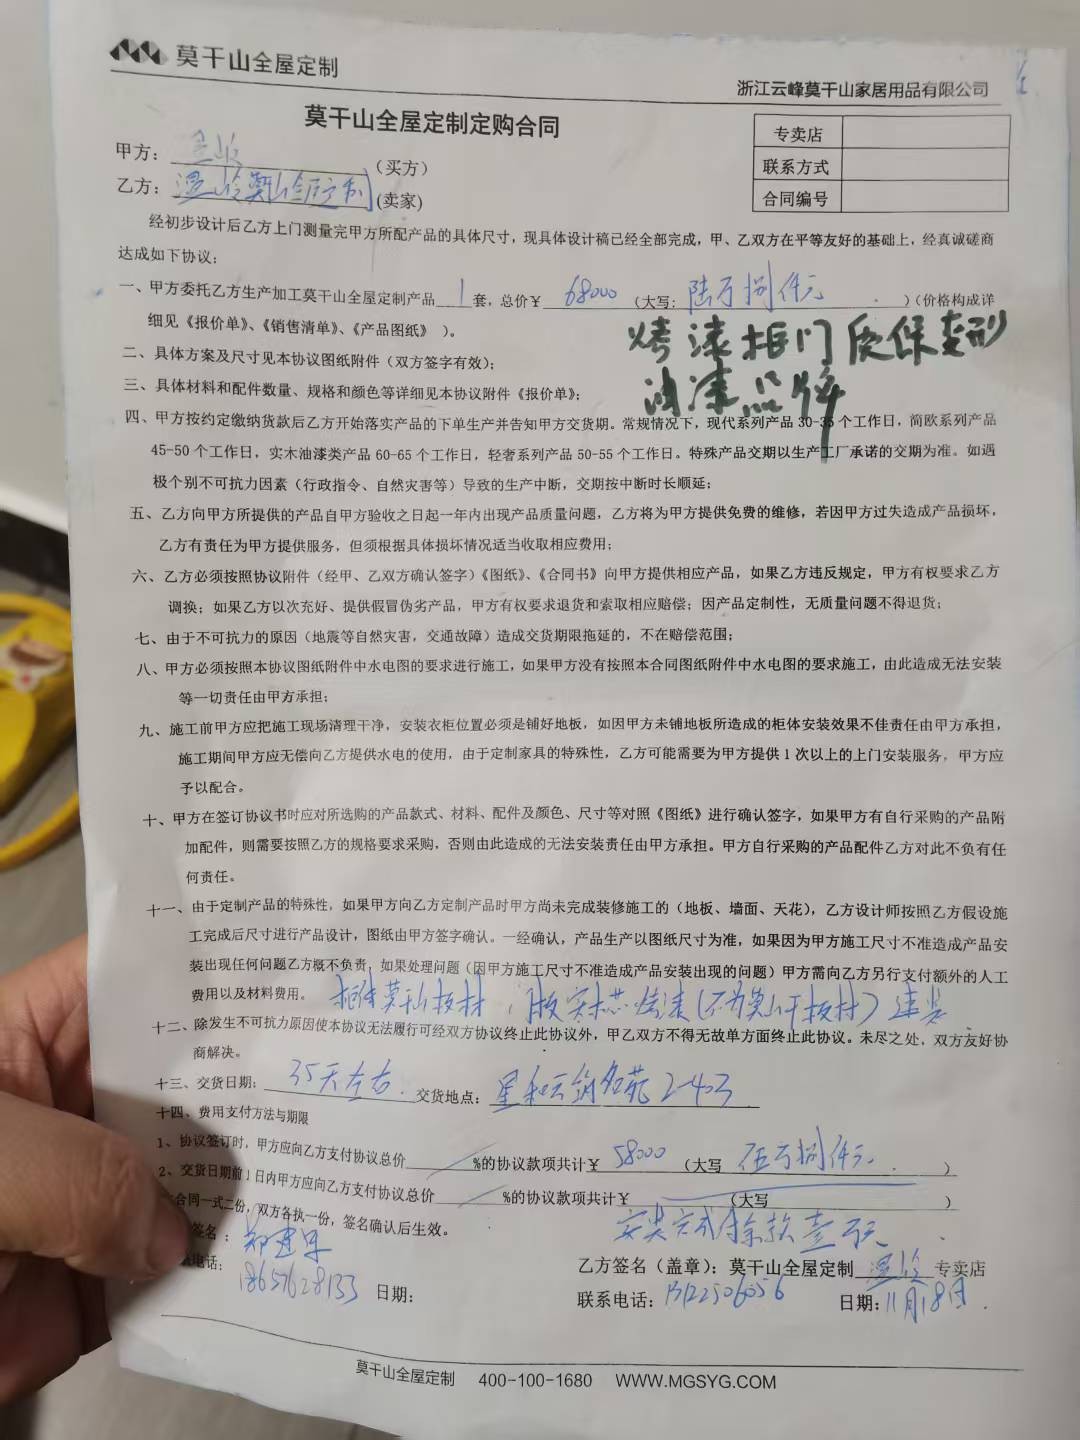 莫干山全屋定制
浙江云峰莫干山家居用品有限公司
莫干山全屋定制定购合同
专卖店
联系方式
合同编号
甲方：（买方）
乙方：温岭莫干山全屋定制(卖家)
经初步设计后乙方上门测量完甲方所配产品的具体尺寸，现具体设计稿已经全部完成，甲、乙双方在平等友好的基础上，经真诚磋商
达成如下协议：
一、甲方委托乙方生产加工莫干山全屋定制产品1套，总价￥68000（大写：陆万捌仟元）（价格构成详
细见《报价单》、《销售清单》、《产品图纸》）。
烤漆柜门质保变形
油漆品牌
二、具体方案及尺寸见本协议图纸附件（双方签字有效）；
三、具体材料和配件数量、规格和颜色等详细见本协议附件《报价单》；
四、甲方按约定缴纳货款后乙方开始落实产品的下单生产并告知甲方交货期。常规情况下，现代系列产品30-35个工作日，简欧系列产品
45-50个工作日，实木油漆类产品60-65个工作日，轻奢系列产品50-55个工作日。特殊产品交期以生产工厂承诺的交期为准。如遇
极个别不可抗力因素（行政指令、自然灾害等）导致的生产中断，交期按中断时长顺延；
五、乙方向甲方所提供的产品自甲方验收之日起一年内出现产品质量问题，乙方将为甲方提供免费的维修，若因甲方过失造成产品损坏，
乙方有责任为甲方提供服务，但须根据具体损坏情况适当收取相应费用；
六、乙方必须按照协议附件（经甲、乙双方确认签字）《图纸》、《合同书》向甲方提供相应产品，如果乙方违反规定，甲方有权要求乙方
调换；如果乙方以次充好、提供假冒伪劣产品，甲方有权要求退货和索取相应赔偿；因产品定制性，无质量问题不得退货；
七、由于不可抗力的原因（地震等自然灾害，交通故障）造成交货期限拖延的，不在赔偿范围；
八、甲方必须按照本协议图纸附件中水电图的要求进行施工，如果甲方没有按照本合同图纸附件中水电图的要求施工，由此造成无法安装
等一切责任由甲方承担；
九、施工前甲方应把施工现场清理干净，安装衣柜位置必须是铺好地板，如因甲方未铺地板所造成的柜体安装效果不佳责任由甲方承担，
施工期间甲方应无偿向乙方提供水电的使用，由于定制家具的特殊性，乙方可能需要为甲方提供1次以上的上门安装服务，甲方应
予以配合。
十、甲方在签订协议书时应对所选购的产品款式、材料、配件及颜色、尺寸等对照《图纸》进行确认签字，如果甲方有自行采购的产品附
加配件，则需要按照乙方的规格要求采购，否则由此造成的无法安装责任由甲方承担。甲方自行采购的产品配件乙方对此不负有任
何责任。
十一、由于定制产品的特殊性，如果甲方向乙方定制产品时甲方尚未完成装修施工的（地板、墙面、天花），乙方设计师按照乙方假设施
工完成后尺寸进行产品设计，图纸由甲方签字确认。一经确认，产品生产以图纸尺寸为准，如果因为甲方施工尺寸不准造成产品安
装出现任何问题乙方概不负责，如果处理问题（因甲方施工尺寸不准造成产品安装出现的问题）甲方需向乙方另行支付额外的人工
费用以及材料费用。
柜体莫干山板材，门板实木芯烤漆（不为莫干山板材）
十二、除发生不可抗力原因使本协议无法履行可经双方协议终止此协议外，甲乙双方不得无故单方面终止此协议。未尽之处，双方友好协
商解决。
十三、交货日期：35天左右．交货地点：星和云筑名苑2-403
十四、费用支付方法与期限
1、协议签订时，甲方应向乙方支付协议总价%的协议款项共计￥58000（大写伍万捌仟元）
2、交货日期前1日内甲方应向乙方支付协议总价%的协议款项共计￥（大写）
合同一式二份，双方各执一份，签名确认后生效。
安装完成付余款壹万元
签名：
乙方签名（盖章）：莫干山全屋定制温岭专卖店
电话：18657628133 日期：
联系电话：13122506056 日期：11月18日
莫干山全屋定制 400-100-1680 WWW.MGSYG.COM